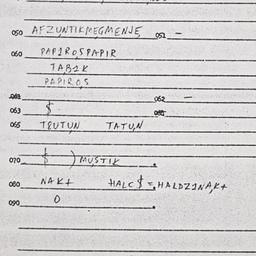 050 AFZUNTIKMEGMENJE 051 -
060 PAPIROSPAPIR
TABAK
PAPIROS
062 -
063 $
065 TEUTUN TATUN
070 $ ) MUSTIK
080 NAKT HALC $ = HALDZINAKT
090 0